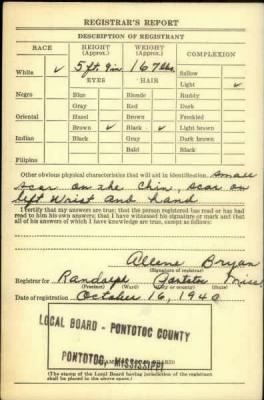 REGISTRAR'S REPORT
DESCRIPTION OF REGISTRANT
RACE HEIGHT (Approx.) WEIGHT (Approx.) COMPLEXION
White ✓ 5 ft. 9 in. 167 lbs. Sallow
EYES HAIR Light ✓
Negro Blue Blonde Ruddy
Gray Red Dark
Oriental Hazel Brown Freckled
Brown ✓ Black ✓ Light brown
Indian Black Gray Dark brown
Bald Black
Filipino
Other obvious physical characteristics that will aid in identification. Small
scar on the chin, scar on
left wrist and hand
I certify that my answers are true; that the person registered has read or has had
read to him his own answers; that I have witnessed his signature or mark and that
all of his answers of which I have knowledge are true, except as follows:
Alleene Bryan
(Signature of registrar)
Registrar for Randolph Pontotoc Miss
(Precinct) (Ward) (City or county) (State)
Date of registration October 16, 1940
LOCAL BOARD - PONTOTOC COUNTY
PONTOTOC, MISSISSIPPI
(The stamp of the Local Board having jurisdiction of the registrant
shall be placed in the above space.)